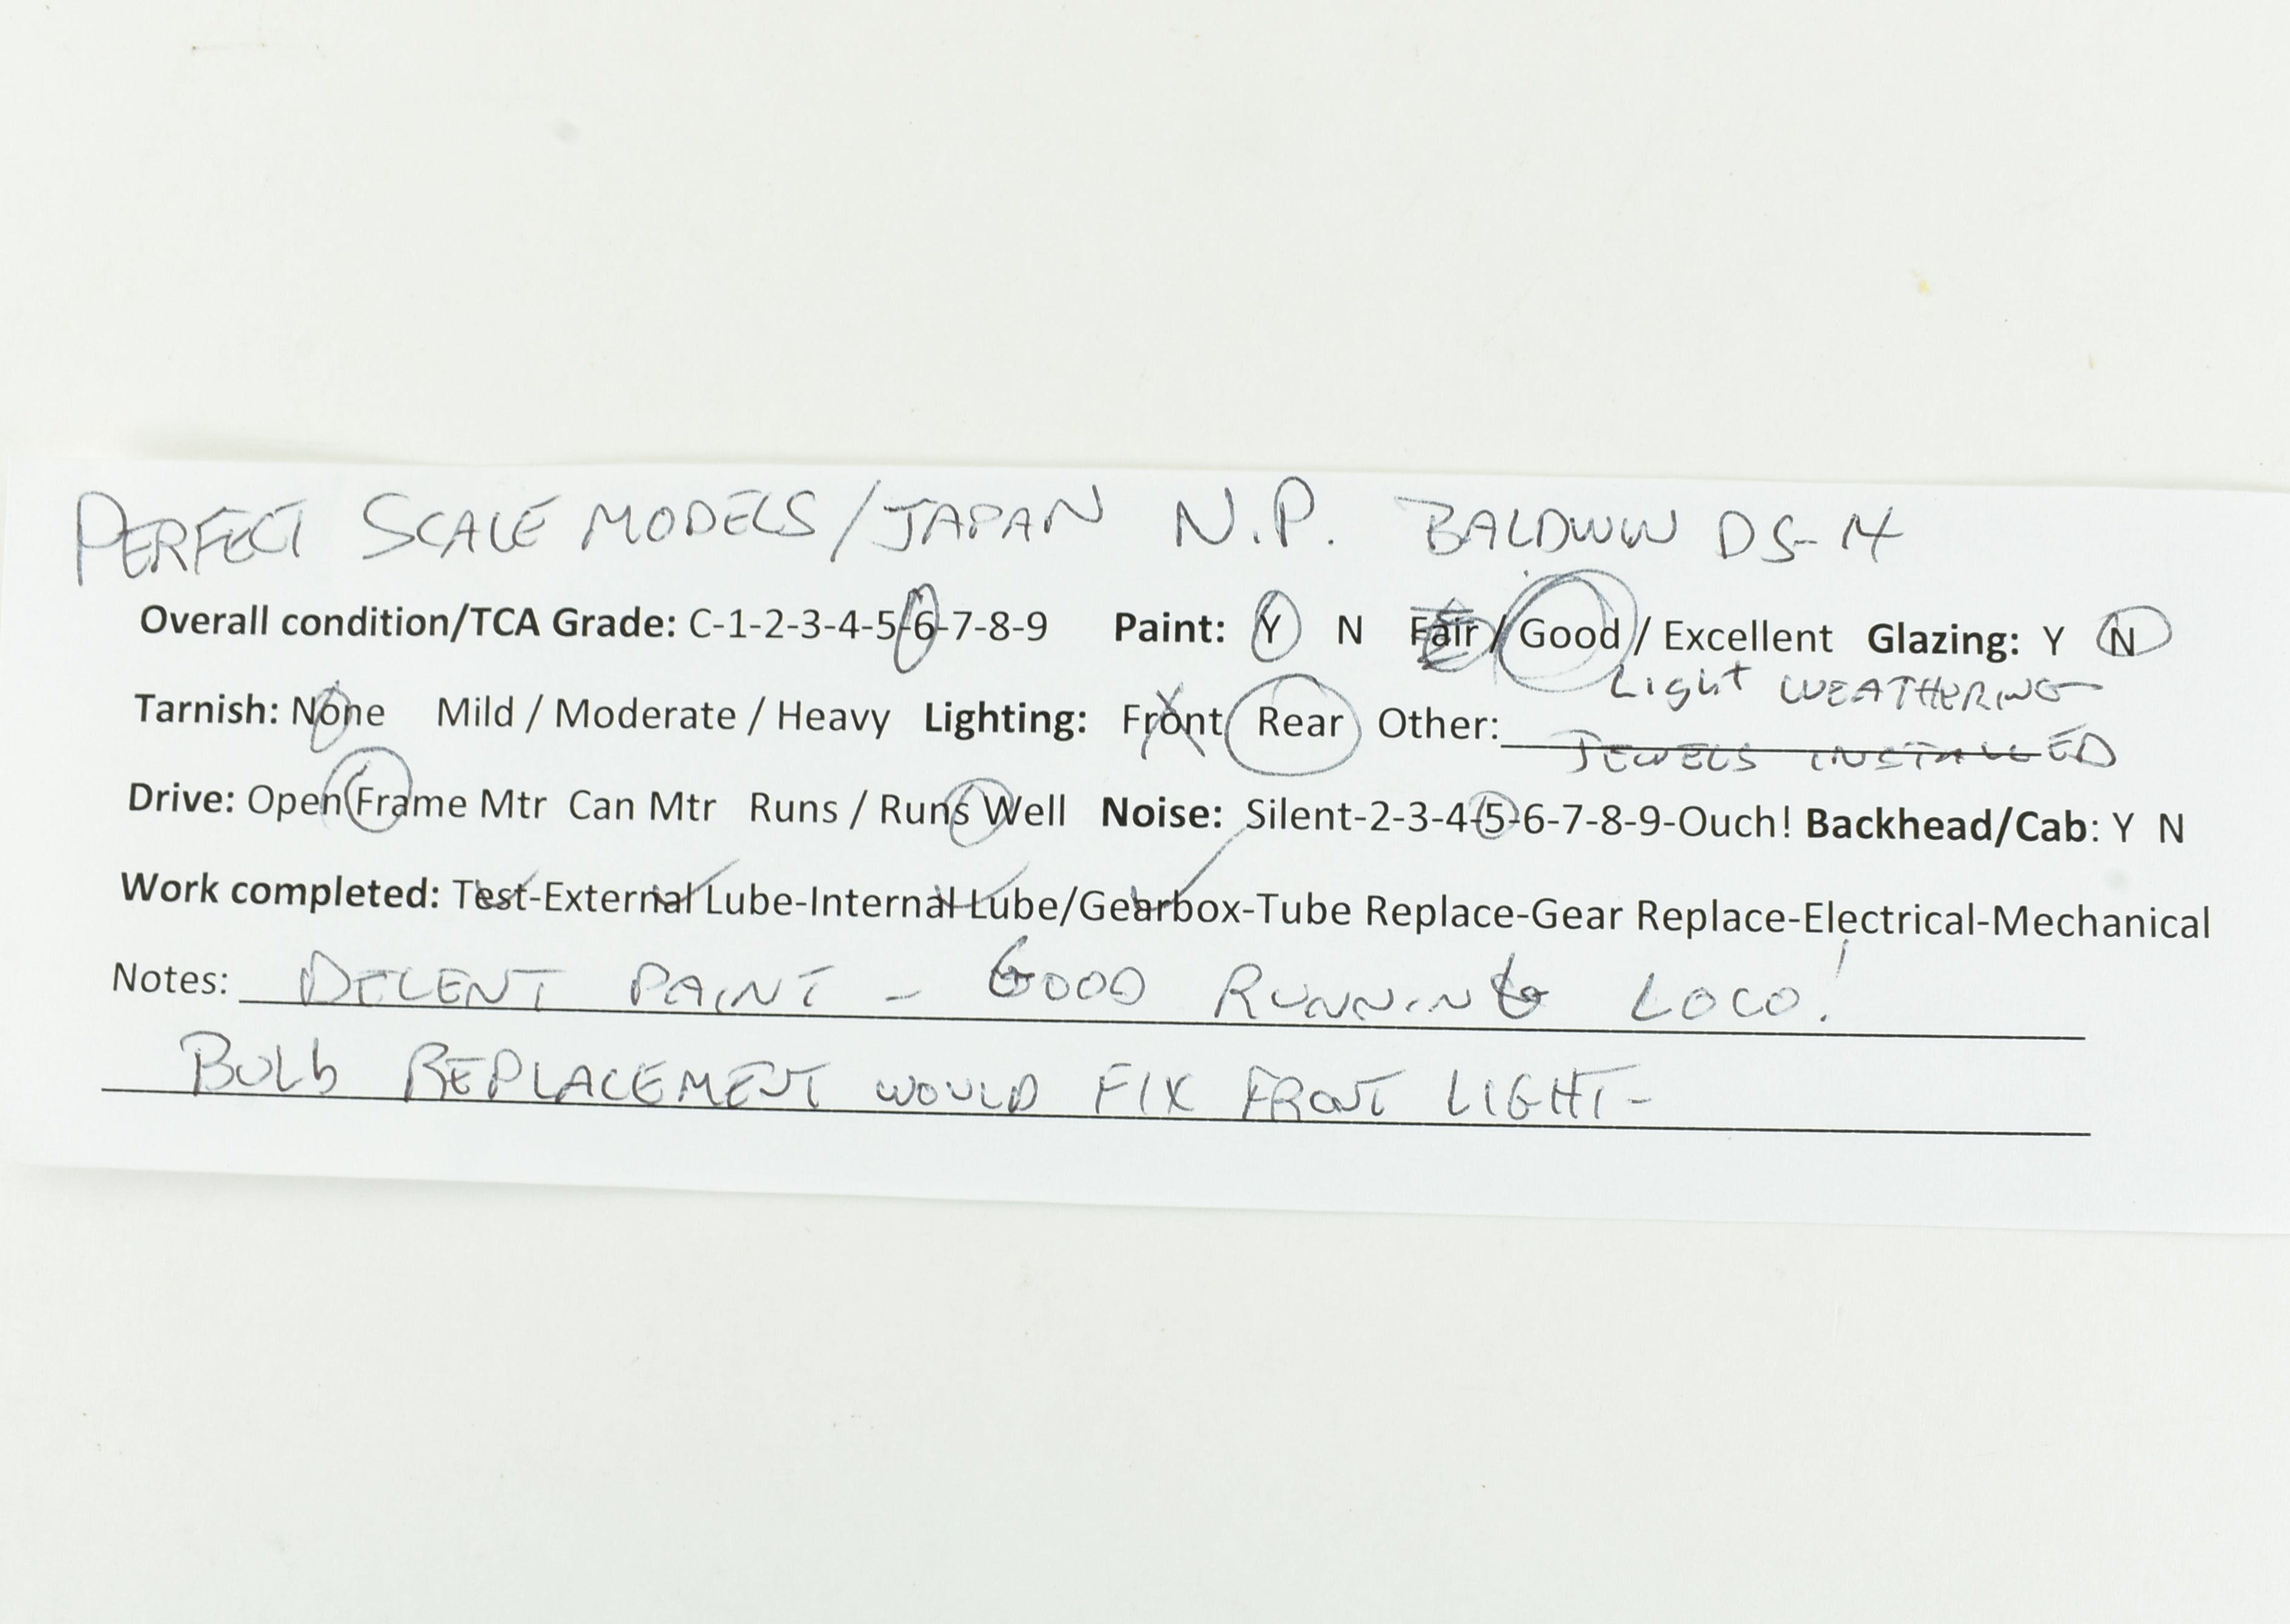 PERFECT SCALE MODELS/JAPAN N.P. BALDWIN DS-14
Overall condition/TCA Grade: C-1-2-3-4-5-6-7-8-9 Paint: Y N Fair / Good / Excellent Glazing: Y N
Light WEATHERING
Tarnish: None Mild / Moderate / Heavy Lighting: Front Rear Other: JEWELS INSTALLED
Drive: Open Frame Mtr Can Mtr Runs / Runs Well Noise: Silent-2-3-4-5-6-7-8-9-Ouch! Backhead/Cab: Y N
Work completed: Test-External Lube-Internal Lube/Gearbox-Tube Replace-Gear Replace-Electrical-Mechanical
Notes: DECENT PAINT - GOOD RUNNING LOCO!
BULb REPLACEMENT WOULD FIX FRONT LIGHT-